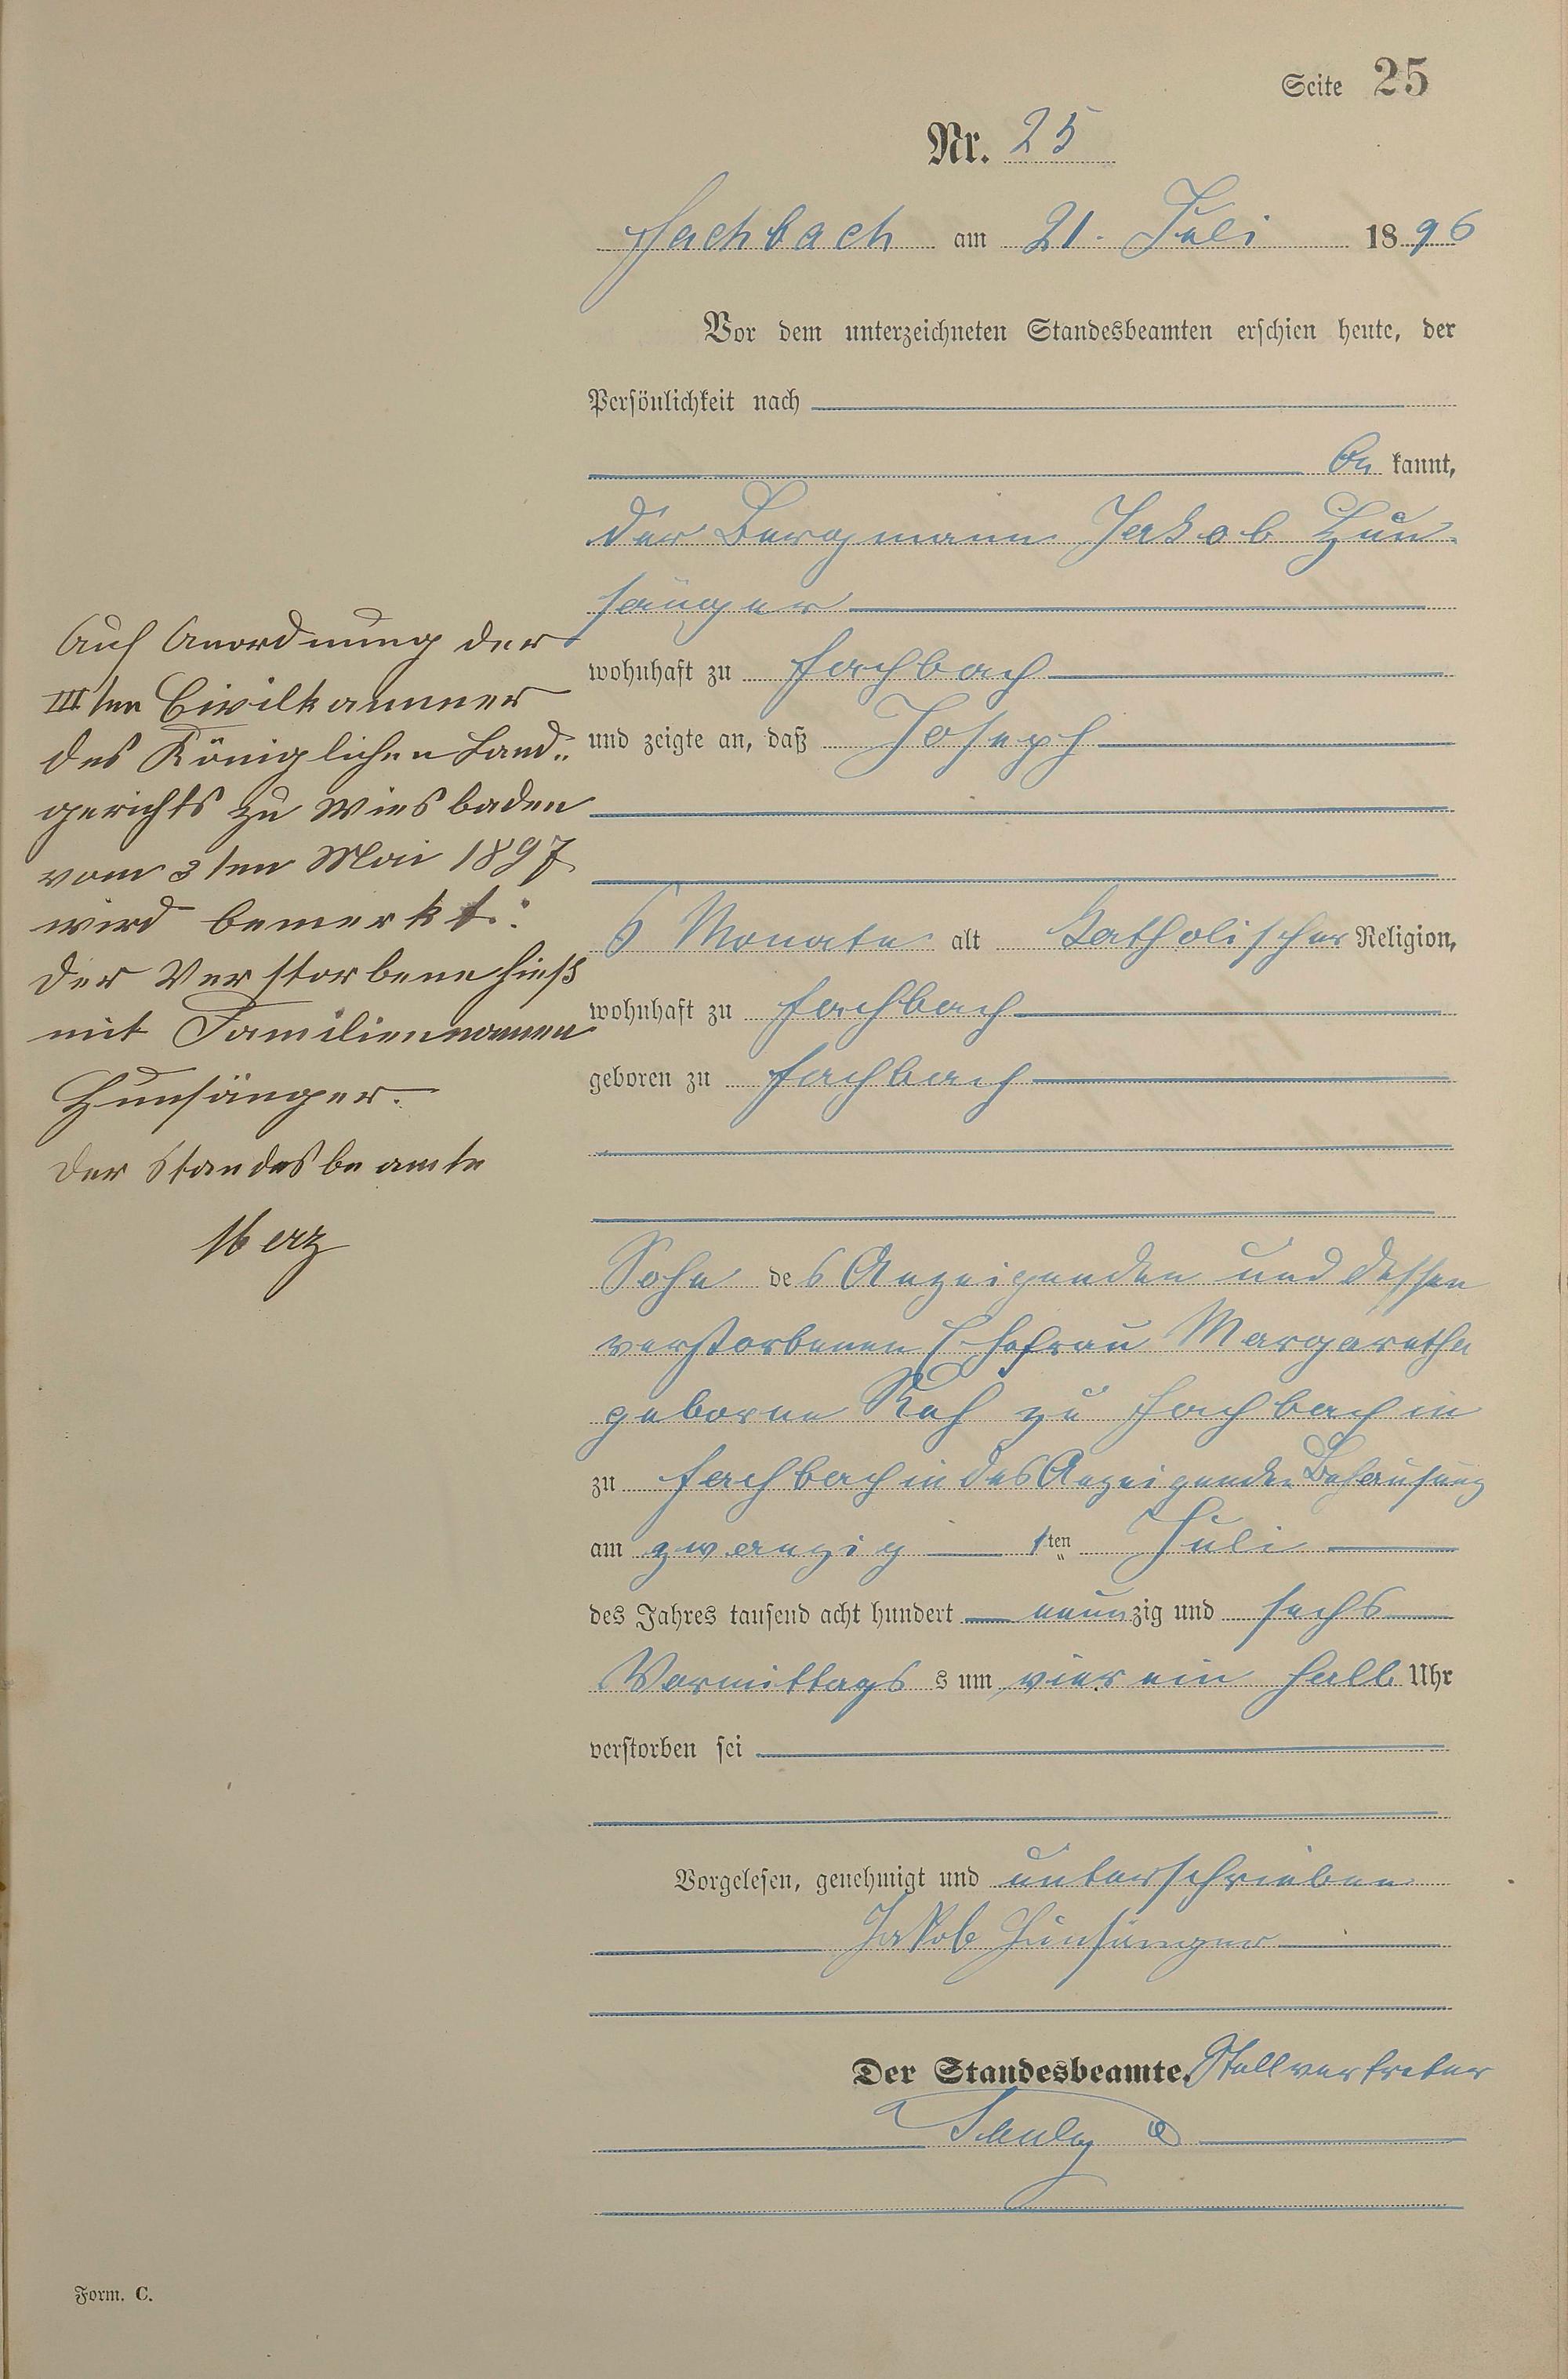 Seite 25
Nr. 25
Fachbach am 21. Juli 1896
Vor dem unterzeichneten Standesbeamten erschien heute, der
Persönlichkeit nach
be kannt,
der Bergmann Jakob Hun-
sänger
wohnhaft zu Fachbach
und zeigte an, daß Joseph
6 Monate alt katholischer Religion,
wohnhaft zu Fachbach
geboren zu Fachbach
Sohn des Anzeigenden und dessen
verstorbenen Ehefrau Margaretha
geborne zu Fachbach in
zu Fachbach in des Anzeigenden Behausung
am zwanzig 1ten Juli
des Jahres tausend acht hundert neunzig und sechs
Vormittags s um vier ein halb Uhr
verstorben sei
Vorgelesen, genehmigt und unterschrieben
Jakob Hunsänger
Der Standesbeamte. Stellvertreter
Auf Anordnung der
IIIten Civilkammer
des Königlichen Land„
gerichts zu Wiesbaden
vom 3ten Mai 1897
wird bemerkt:
der Verstorbene hieß
mit Familiennamen
Hunsänger.
Der Standesbeamte
Merz
Form. C.